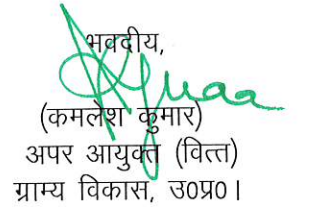 भवदीय,
(कमलेश कुमार)
अपर आयुक्त (वित्त)
ग्राम्य विकास, उ0प्र0।